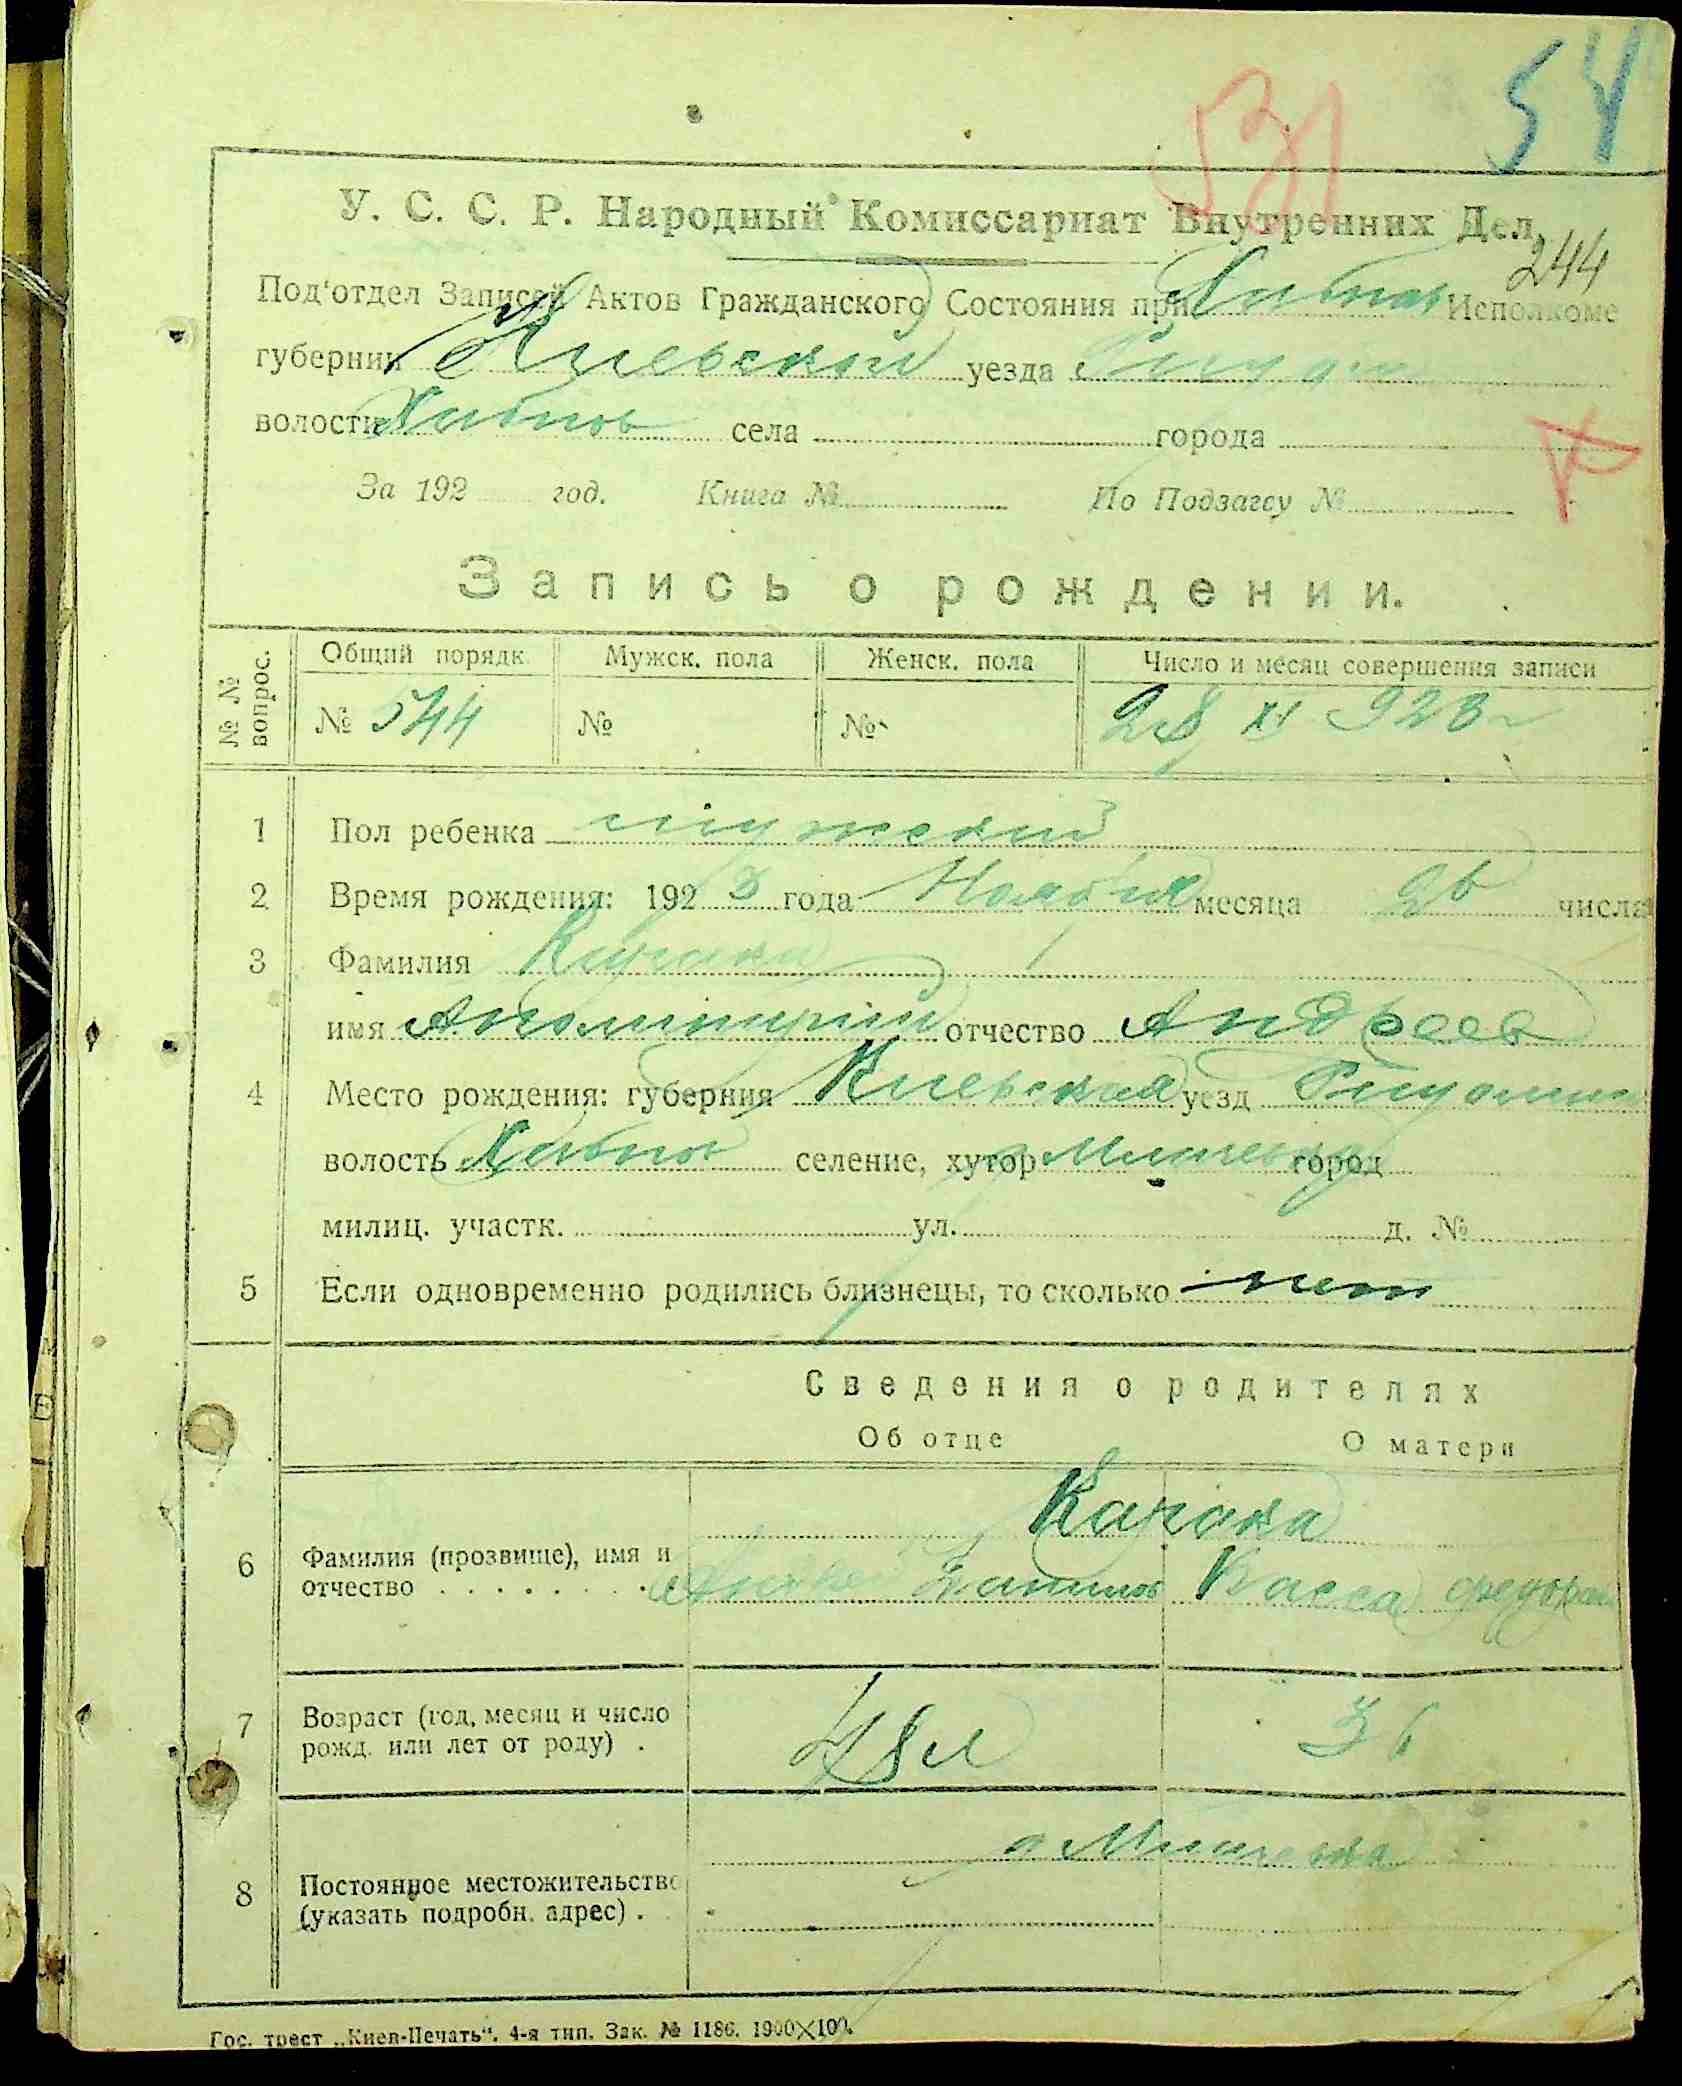 54
531
У. С. С. Р. Народный Комиссариат Внутренних Дел.
244
Под'отдел Записей Актов Гражданского Состояния при Хабнов Исполкоме
губернии Киевской уезда
волости Хабнов села города
За 192 год. Книга № По Подзагсу №
Запись о рождении.
№ № вопрос.
Общий порядк. Мужск. пола Женск. пола Число и месяц совершения записи
№ 544 № № 28 XI 923 г
1 Пол ребенка мужской
2 Время рождения: 192 3 года Ноября месяца 26 числа
3 Фамилия
имя отчество Андреев
4 Место рождения: губерния Киевская уезд
волость Хабнов селение, хутор город
милиц. участк. ул. д. №
5 Если одновременно родились близнецы, то сколько нет
Сведения о родителях
Об отце О матери
6 Фамилия (прозвище), имя и отчество
Андрей Данилов Васса
7 Возраст (год, месяц и число рожд. или лет от роду) . 48 л 36
8 Постоянное местожительство (указать подробн. адрес) .
Гос. трест „Киев-Печать“. 4-я тип. Зак. № 1186. 1900×100.